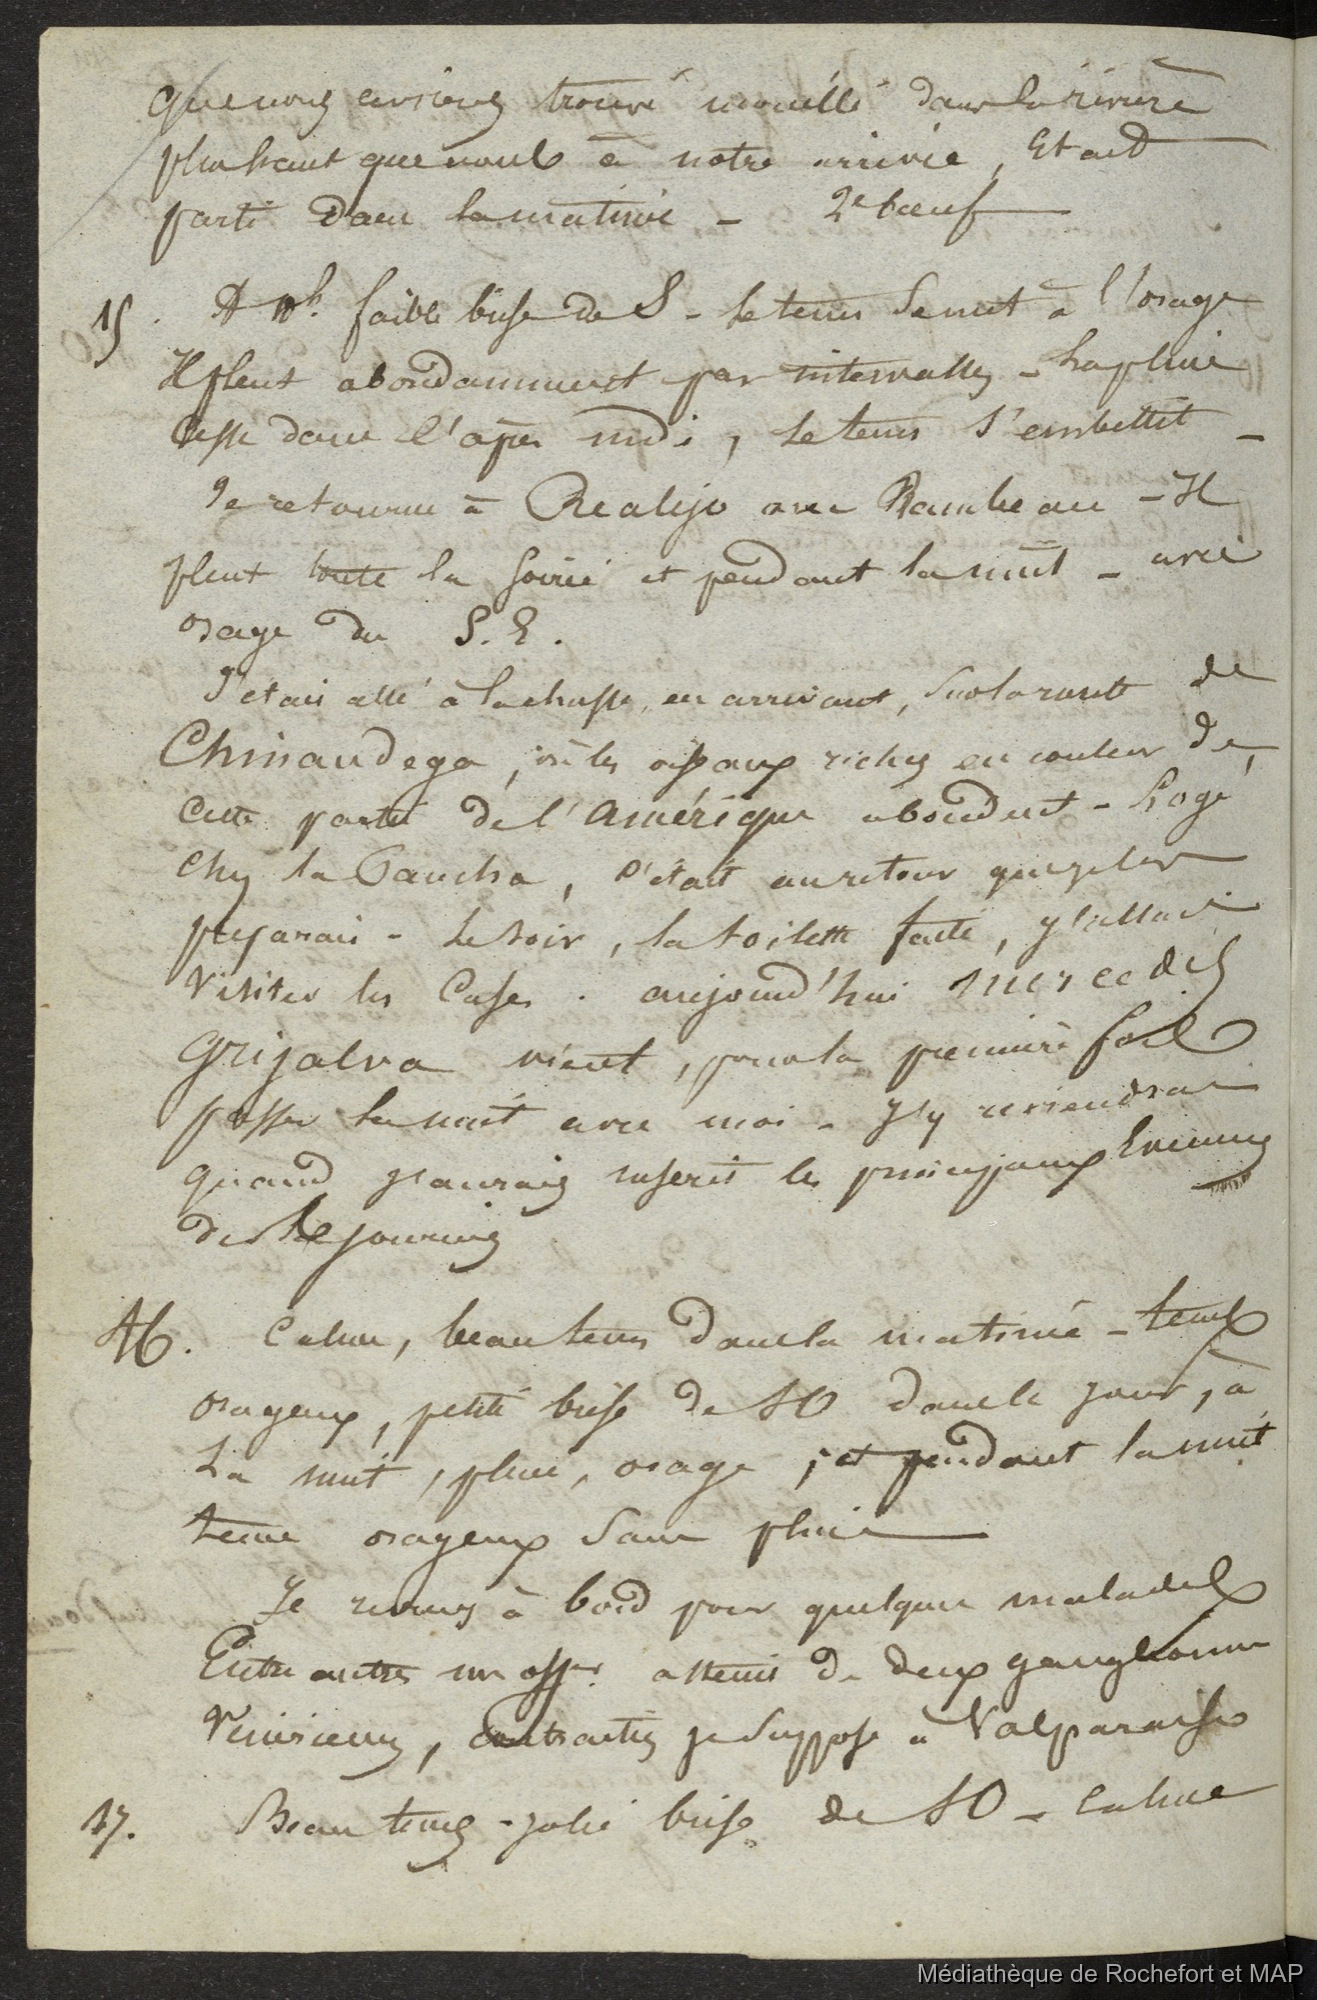 que nous avions trouvé mouillé dans la rivière
plus haut que nous à notre arrivée, Etait
parti dans la matinée – 2e bœuf
15. A h. faible brise de S – Le tems se met à l'orage
Il pleut abondamment par intervalles – La pluie
cesse dans l'après midi, le tems s'embellit –
Je retourne à Realejo avec Rambeau – Il
pleut toute la soirée et pendant la nuit – avec
orage du S.E.
J'etais allé à la chasse, en arrivant, sur la route de
Chinandega, où les oiseaux riches en couleur de
cette partie de l'amérique abondent – Logé
chez la Pancha, c'était au retour que je les
preparais – Le soir, la toilette faite, j'allais
visiter les Cases. aujourd'hui Mercedes
Grijalva vient, pour la première fois
passer la nuit avec moi – J'y reviendrai
quand j'aurais inserit les principaux Evenemens
de la journée
16. Calme, beau tems dans la matinée – tems
orageux, petite brise de SO dans le jour, à
La nuit, pluie, orage, et pendant la nuit
tems orageux sans pluie
Je reviens à bord pour quelques malades
Entre autres un offer. atteint de deux ganglions
Vénériens, contractés je suppose à Valparaiso
17. Beau temps – jolie brise de SO – calme
Médiathèque de Rochefort et MAP